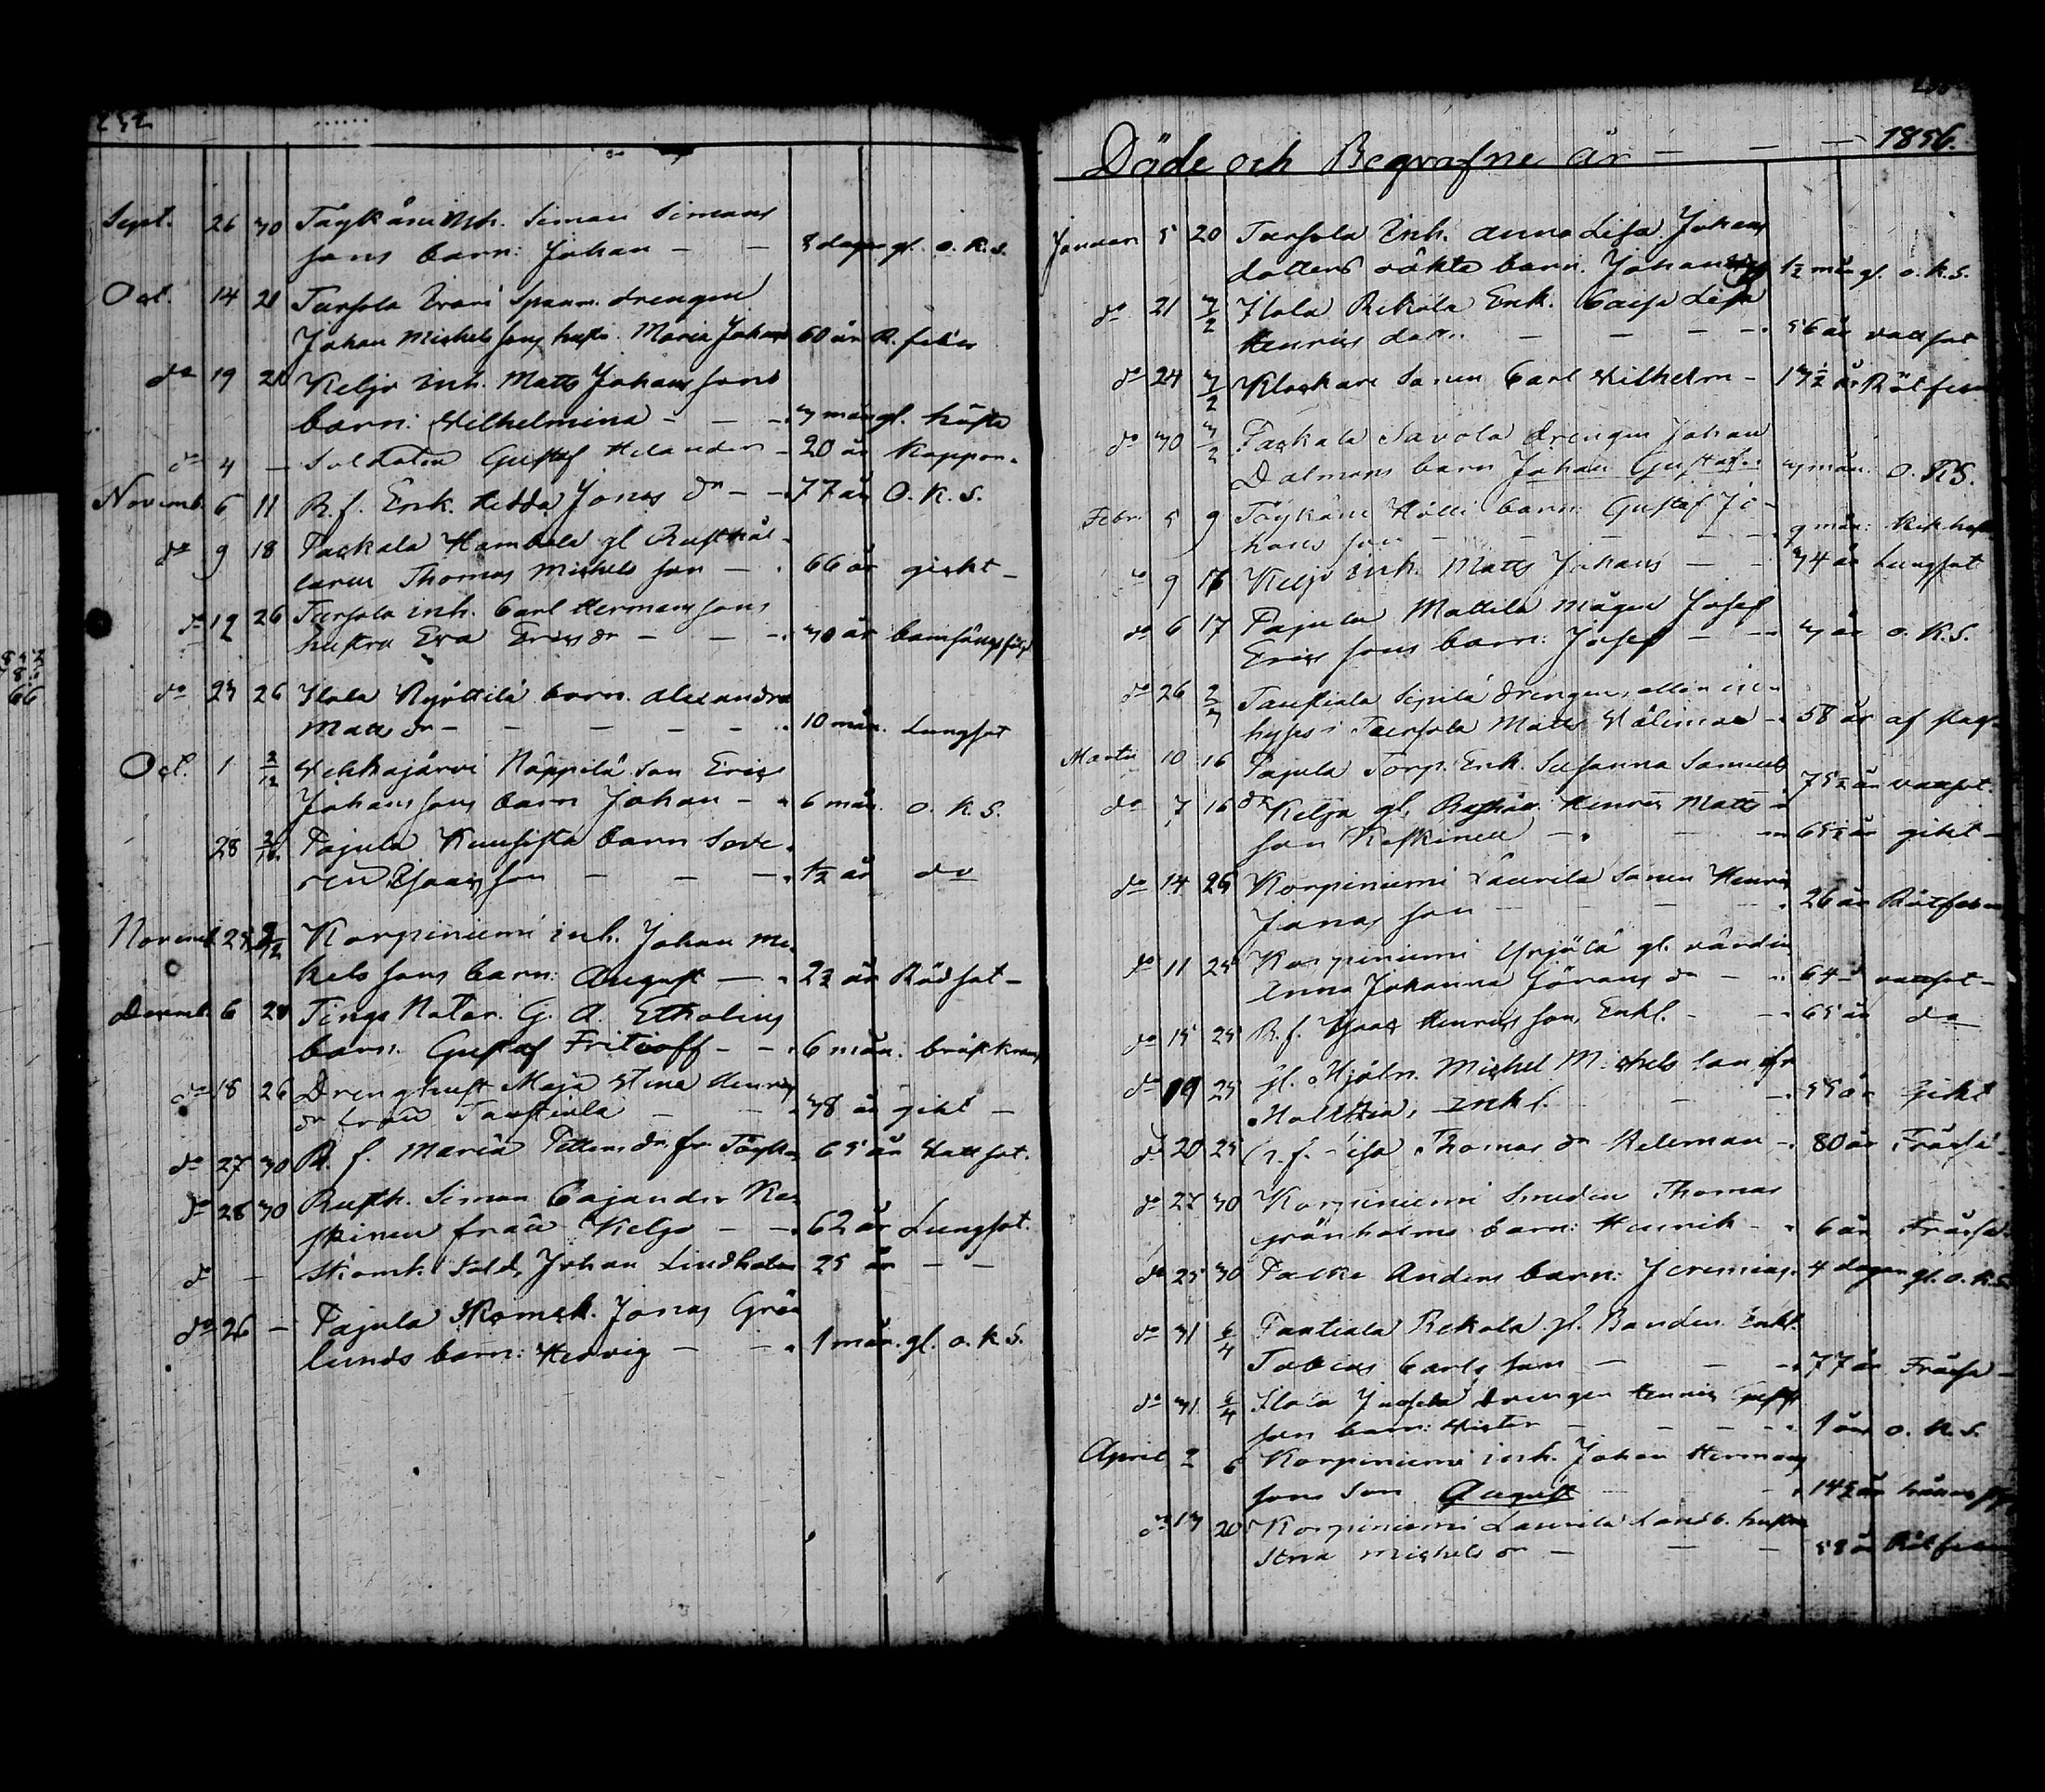 252
Sept. 26 30 Töykäne Inh. Simon Simons
sons barn: Johan — — 8 dagar gl. o. K. S.
Oct. 14 21 Tursola Drengen
Johan Michels sons hust. Maria Johans 60 år R. feber
do 19 21 Keljo Inh. Matts Johans sons
barn: Wilhelmina - - - 3 mån gl. hosta
do 4 — Soldaten Gustaf Helander - 20 år Koppor.
Novemb. 6 11 R. f. Enk. Hedda Jonas dr - - 77 år O. K. S.
do 9 18 Packala Hambela gl Rusthål-
laren Thomas Michels son — 66 år gickt -
do 12 26 Tursola inh. Carl Hermans sons
hustru Eva Erics dr - - - 30 år barnsängs
do 23 26 Ilola barn. Alexandra
Matts dr - - - - - 10 mån. Lungsot
Oct. 1 2/12 Wehkajärvi Näppilä Son Erics
Johans sons barn Johan - - 6 mån. o. K. S.
28 Pajula Kuusista barn Seve-
rin Isaacs son - - - 1/2 år do
Novemb. 25 2/12 Korpiniemi inh. Johan Mi-
kels sons barn: August — 2 1/2 år Rödsot -
Decemb. 6 21 Tings Notar. G. A. Etholins
barn. Gustaf Fritioff - - 6 mån. bröstkramp
do 18 26 Dreng hust Maja Stina Henrics
dr från Tausticla — — 38 år gikt -
do 27 30 R. f. Maria Petters dr fr. Töyk. 65 år Wattsot.
do 28 30 Rusth. Simon Cajander Ke-
skinen från Keljo - - 62 år Lungsot.
do - Sold. Johan Lindholm 25 år - -
do 26 — Pajula Jonas Grön
lunds barn: Hedvig - - 1 mån. gl. o. K. S.
Döde och Begrafne år — — — 1856.
Januari 5 20 Tursola Inh. Anna Lisa Johans
dotters oäkta barn. Johannes 1/2 mån gl. o. K. S.
do 21 3/2 Ilola Rekola Enk. Caisa Lisa
Henrics dotter — — — 56 år vattsot
do 24 3/2 Klockare Sonen Carl Wilhelm - 13 1/2 år Rötfeber
do 30 3/2 Packala Savola drengen Johan
Dalmans barn Johan Gustaf. 3 mån: O. K. S.
Febr. 5 9 Töykäne Hölli barn: Gustaf Jo-
hans son — — — 9 mån: Kikhosta
do 9 16 Keljo inh. Matts Johans — — 34 år Lungsot
do 6 17 Pajula Mattila mågen Josef
Erics sons barn: Josef — — 3 år o. K. S.
do 26 2/3 Taustiala Sipilä drengen
hyses i Tursola Matts Wälimaa - 58 år af slag
Martii 10 16 Pajula Torp. Enk. Susanna Samuels
dr 75 1/2 år vattsot.
do 7 16 Keljo gl. Rusthår. Henric Matts
son Keskinen — — 65 1/2 år gikt -
do 14 25 Korpiniemi Laurila sonen Henric
Jonas son — — — 26 år Rötfeber
do 11 25 Korpiniemi Yrjölä gl. värdin
Anna Johanna Jörans dr — 64 - vattsot -
do 15 25 R. f. Isaac Henrics son, Enkl. — 65 år do
do 19 25 gl. Mjöln. Michel Michels son fr.
Enkl. — — 55 år Gikt
do 20 25 R. f. Lisa Thomas dr Heleman - 80 år Fräsa
do 27 30 Korpiniemi Smeden Thomas
Grönholms barn: Henrik - 6 år Fräsa
do 25 30 Packa Anders barn: Jeremias. 4 dagar gl. o. K. S.
do 31 6/4 Tautiala Rekola gl. Bonden Enkl.
Tobias Carls son — — — 77 år Fräsa -
do 31 6/4 Ilola drengen Henric
son barn: Wictor — — — 1 år o. K. S.
April 2 6 Korpiniemi inh. Johan Hermans
sons Son August — — 14 1/2 år
do 13 20 Korpiniemi Laurila Landb. hustru
Stina Michels dr — — — 58 år Rötfeber